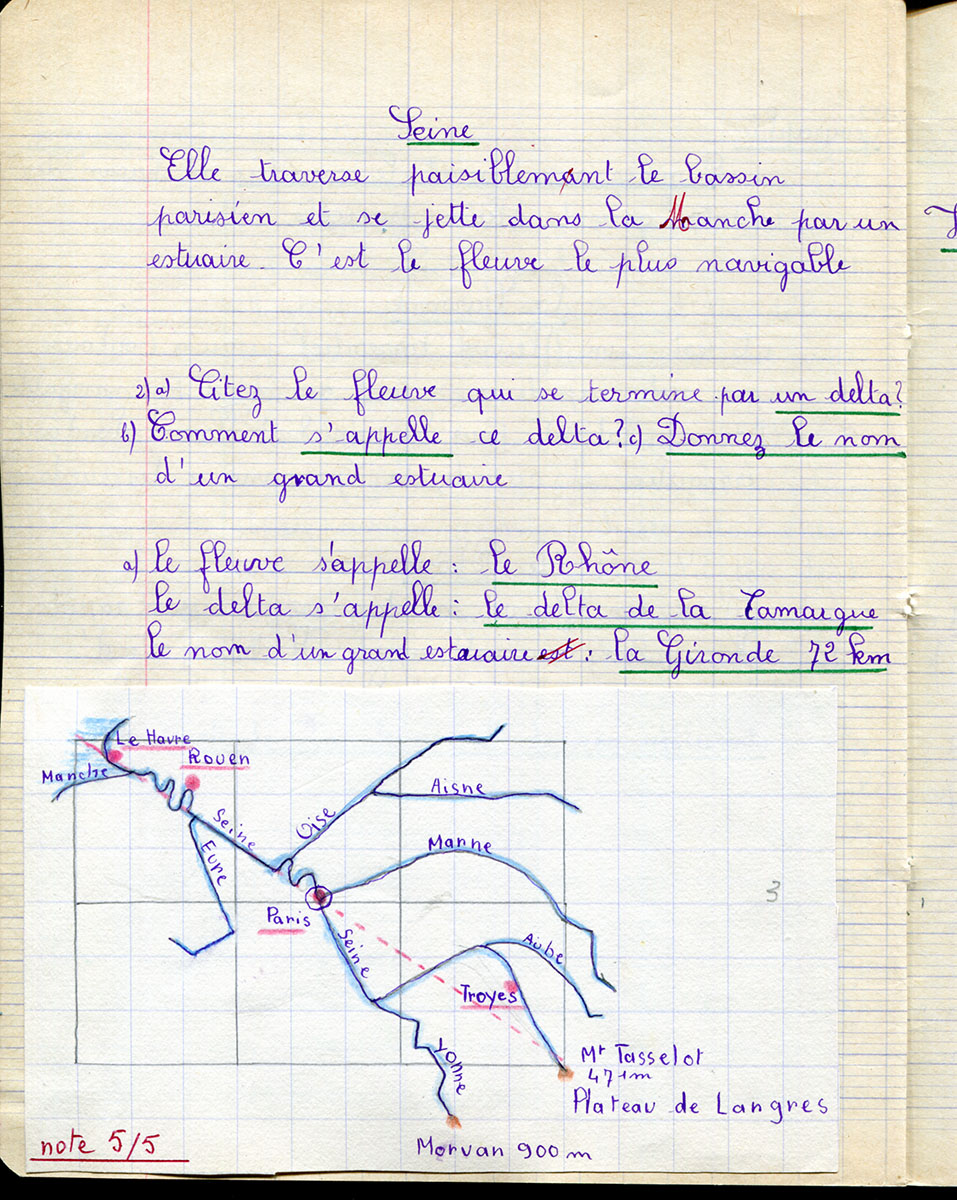 Seine
Elle traverse paisiblement le bassin
parisien et se jette dans la Manche par un
estuaire. C'est le fleuve le plus navigable
2) a) Citez le fleuve qui se termine par un delta?
b) Comment s'appelle ce delta? c) Donnez le nom
d'un grand estuaire
a) le fleuve s'appelle : le Rhône
le delta s'appelle : le delta de la Camargue
le nom d'un grand estuaire est : la Gironde 72 km
Le Havre
Rouen
Manche
Seine
Oise
Aisne
Eure
Marne
3
Paris
Seine
Aube
Troyes
Yonne
Mt Tasselot
471m
Plateau de Langres
note 5/5
Morvan 900 m